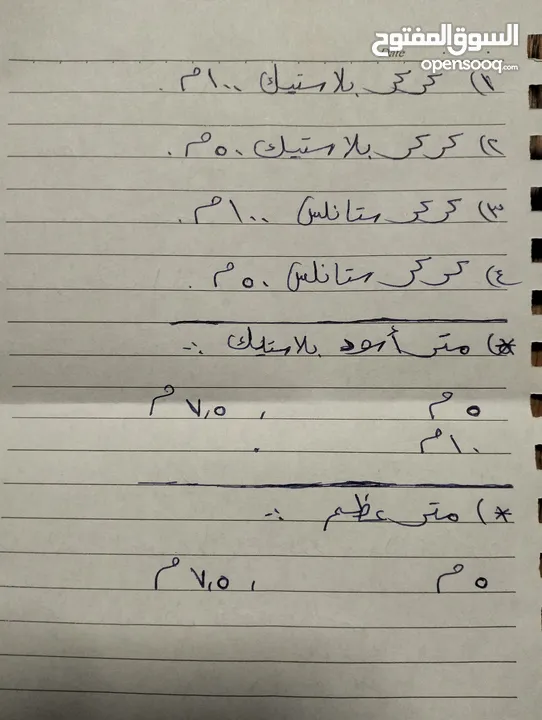 السوق المفتوح
opensooq.com
Date
١) كركر بلاستيك ١٠٠م.
٢) كركر بلاستيك ٥٠م.
٣) كركر ستانلس ١٠٠م.
٤) كركر ستانلس ٥٠م.
*) متر أسود بلاستيك :-
٥م ، ٧,٥م
١٠م .
*) متر عظم :-
٥م ، ٧,٥م